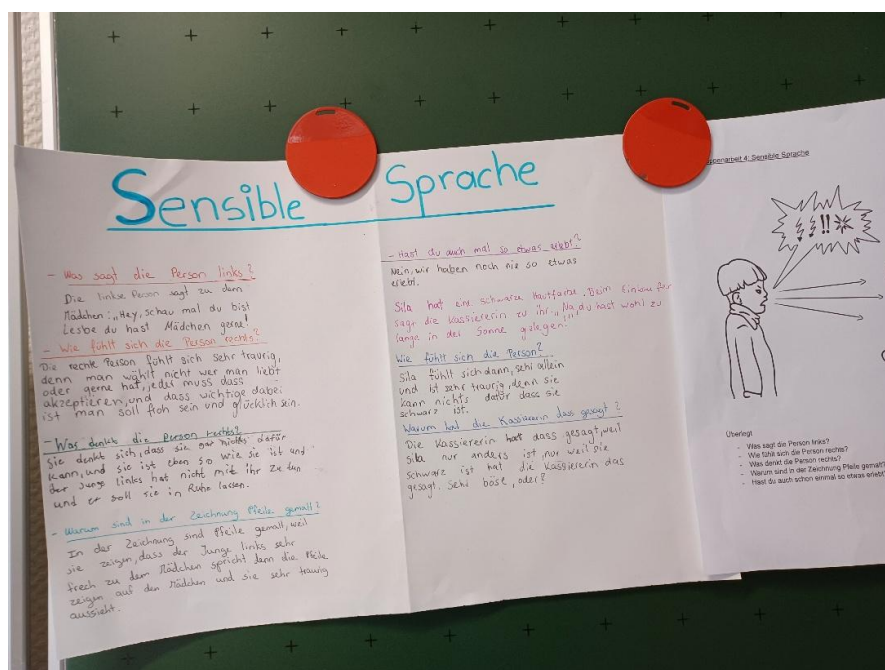 Sensible Sprache
- Was sagt die Person links?
Die linke Person sagt zu dem
Mädchen: „Hey, schau mal du bist
Lesbe du hast Mädchen gerne!
- Wie fühlt sich die Person rechts?
Die rechte Person fühlt sich sehr traurig,
denn man wählt nicht wer man liebt
oder gerne hat, jeder muss dass
akzeptieren, und dass wichtige dabei
ist man soll froh sein und glücklich sein.
- Was denkt die Person rechts?
Sie denkt sich, dass sie gar nichts dafür
kann, und sie ist eben so wie sie ist und
der Junge links hat nicht mit ihr zu tun
und er soll sie in Ruhe lassen.
- Warum sind in der Zeichnung Pfeile gemalt?
In der Zeichnung sind Pfeile gemalt, weil
sie zeigen, dass der Junge links sehr
frech zu dem Mädchen spricht denn die Pfeile
zeigen auf den Mädchen und sie sehr traurig
aussieht.
- Hast du auch mal so etwas erlebt?
Nein, wir haben noch nie so etwas
erlebt.
Sila hat eine schwarze Hautfarbe. Beim Einkaufen
sagt die Kassiererin zu ihr „Na, du hast wohl zu
lange in der Sonne gelegen!"
Wie fühlt sich die Person?
Sila fühlt sich dann, sehr allein
und ist sehr traurig, denn sie
kann nichts dafür dass sie
schwarz ist.
Warum hat die Kassiererin dass gesagt?
Die Kassiererin hat dass gesagt, weil
Sila nur anders ist, nur weil sie
schwarz ist hat die Kassiererin das
gesagt. Sehr böse, oder?
ppenarbeit 4: Sensible Sprache
!!
Überlegt
- Was sagt die Person links?
- Wie fühlt sich die Person rechts?
- Was denkt die Person rechts?
- Warum sind in der Zeichnung Pfeile gemalt?
- Hast du auch schon einmal so etwas erlebt?